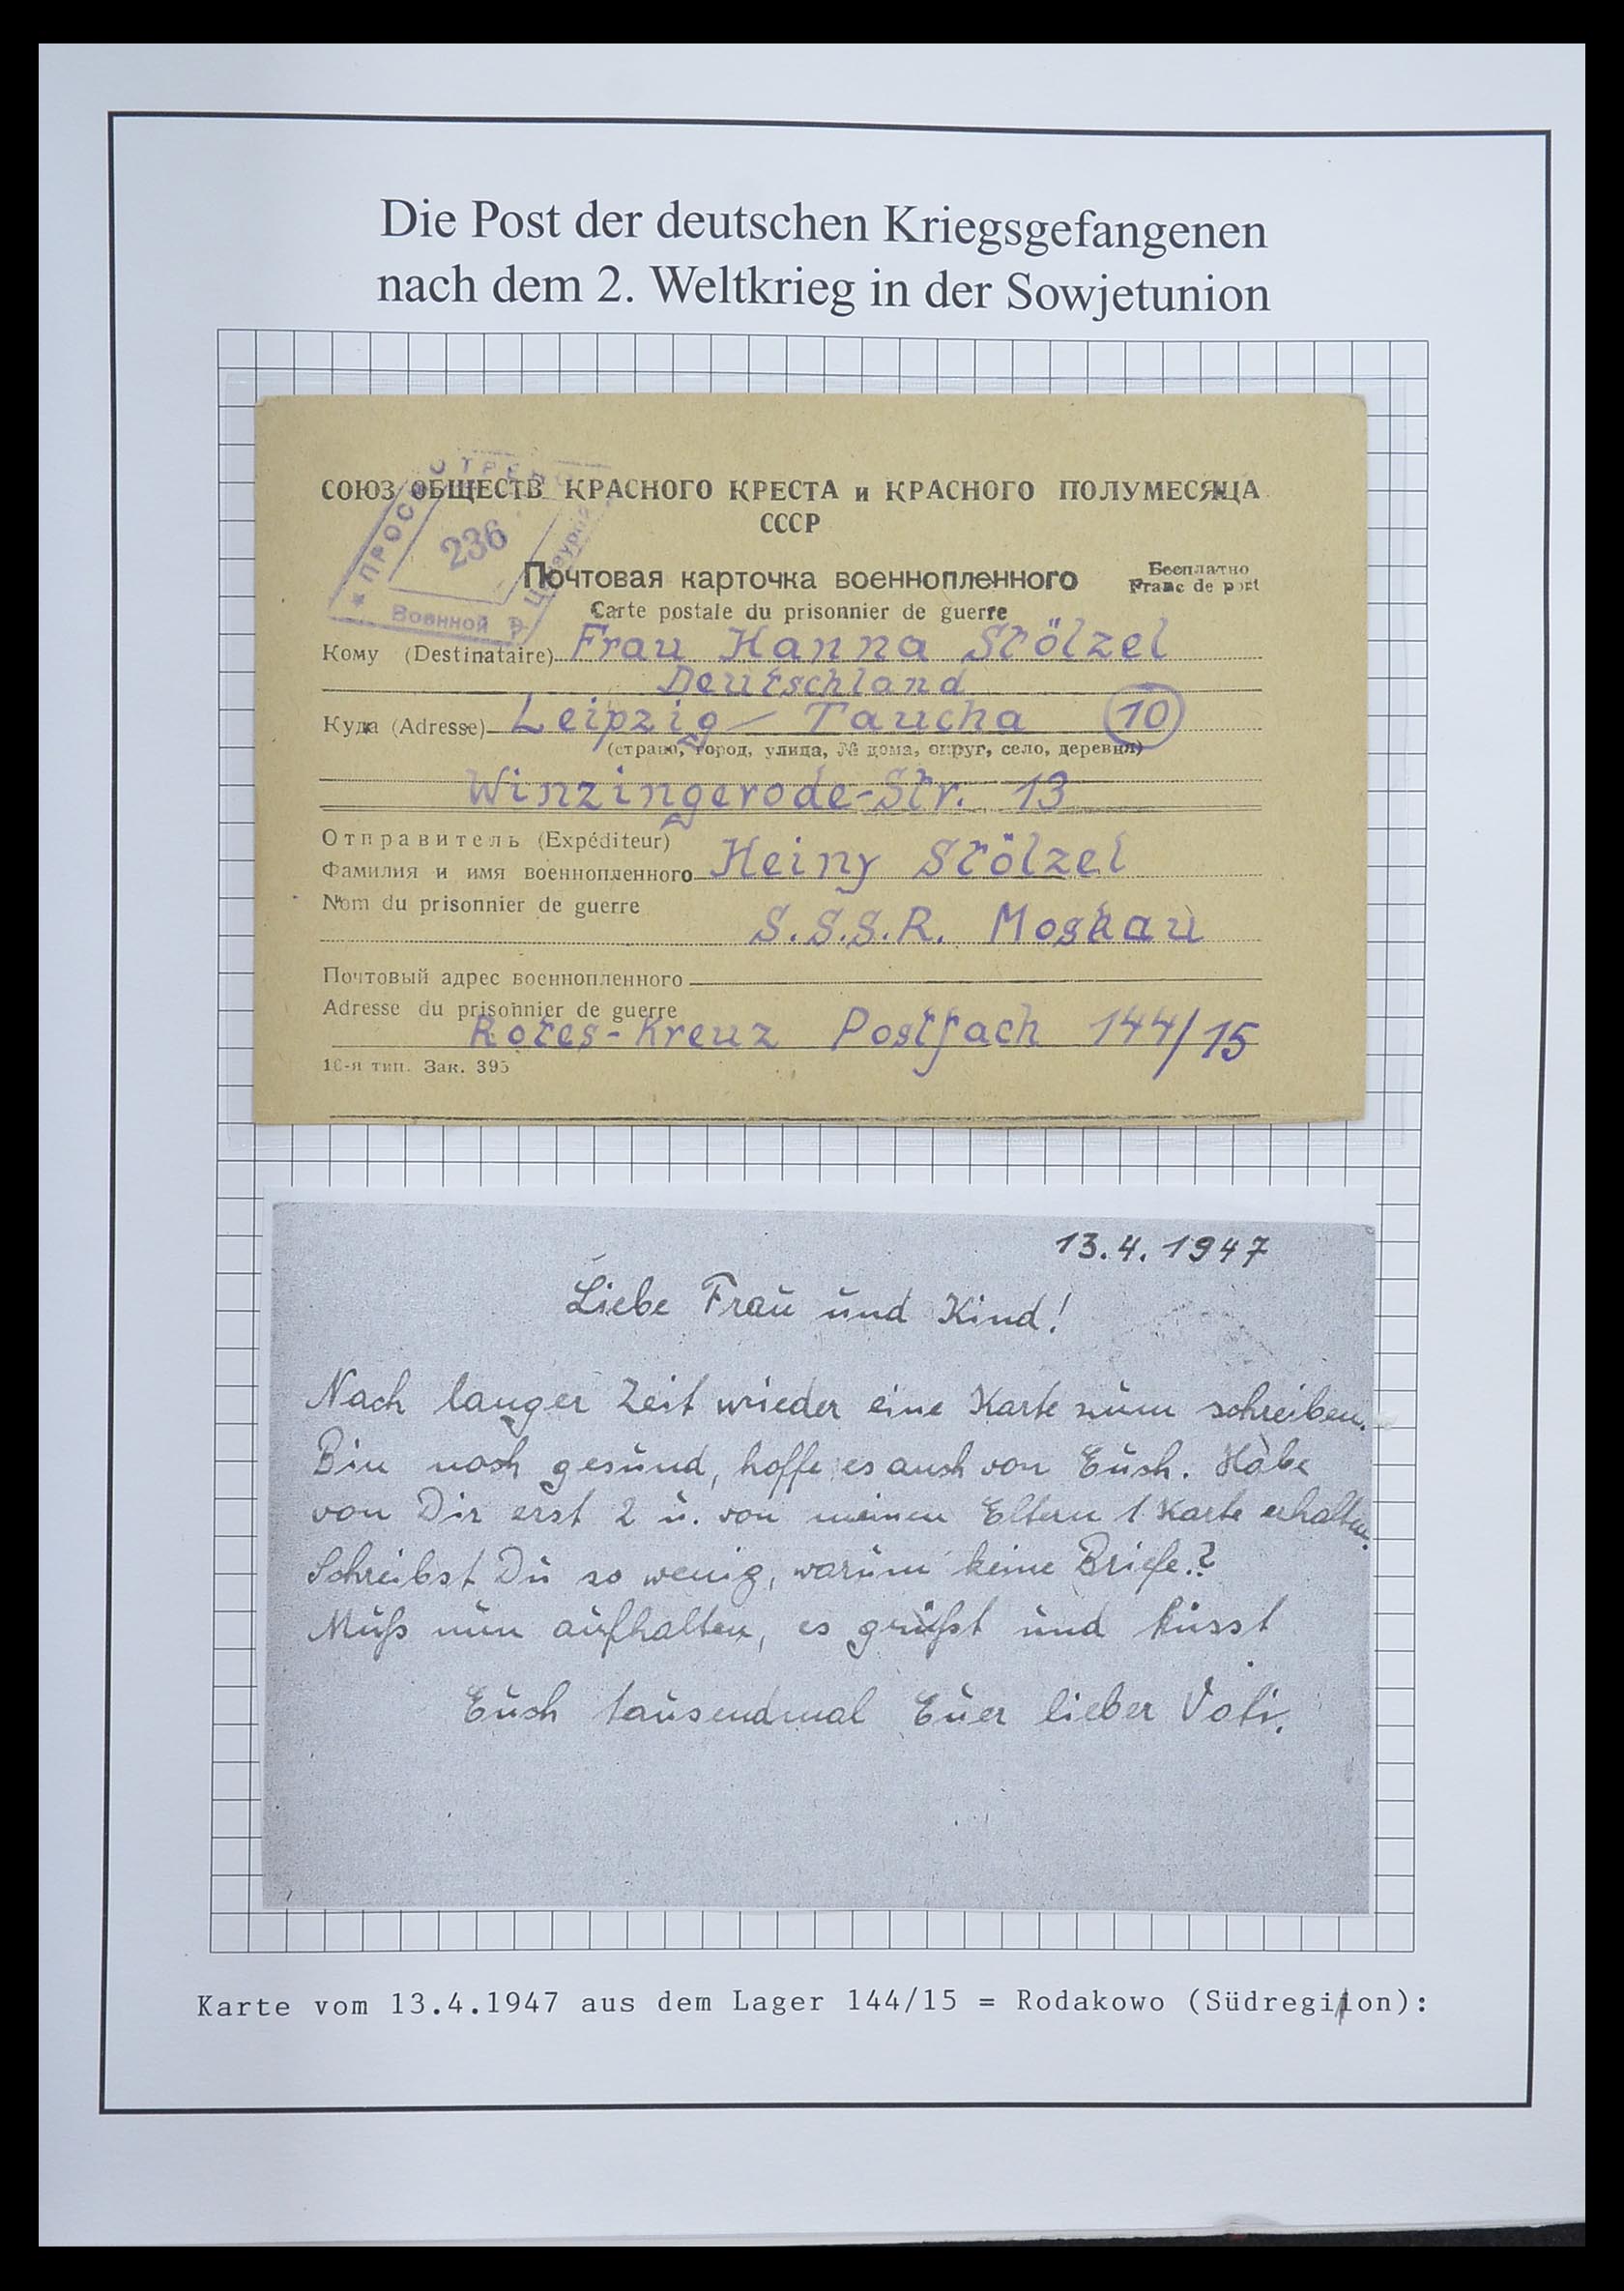 Die Post der deutschen Kriegsgefangenen
nach dem 2. Weltkrieg in der Sowjetunion
СОЮЗ ОБЩЕСТВ КРАСНОГО КРЕСТА и КРАСНОГО ПОЛУМЕСЯЦА
СССР
ПРОСМОТРЕНО
236
Военной Цензурой
Почтовая карточка военнопленного
Carte postale du prisonnier de guerre
Бесплатно
Franc de port
Кому (Destinataire) Frau Hanna Stölzel
Deutschland
Куда (Adresse) Leipzig - Taucha 10
(страна, город, улица, № дома, округ, село, деревня)
Winzingerode-Str. 13
Отправитель (Expéditeur)
Фамилия и имя военнопленного Heiny Stölzel
Nom du prisonnier de guerre
S.S.S.R. Moskau
Почтовый адрес военнопленного
Adresse du prisonnier de guerre
Rotes-Kreuz Postfach 144/15
16-я тип. Зак. 395
13.4.1947
Liebe Frau und Kind!
Nach langer Zeit wieder eine Karte zum schreiben.
Bin noch gesund, hoffe es auch von Euch. Habe
von Dir erst 2 u. von meinen Eltern 1 Karte erhalten.
Schreibst Du so wenig, warum keine Briefe.?
Muß nun aufhalten, es grüßt und küsst
Euch tausendmal Euer lieber Vati.
Karte vom 13.4.1947 aus dem Lager 144/15 = Rodakowo (Südregion):